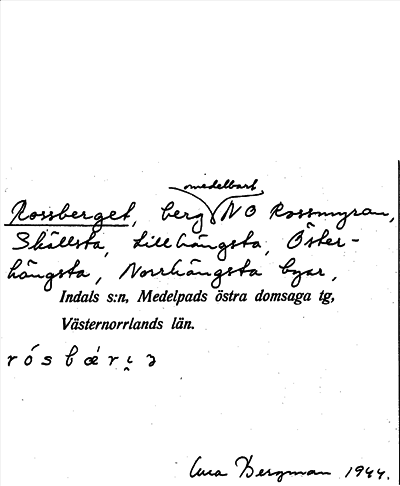 medelbart
Rossberget, berg NO Rossmyran,
Skällsta, Lillhängsta, Öster-
hängsta, Norrhängsta byar,
Indals s:n, Medelpads östra domsaga tg,
Västernorrlands län.
Bergman 1944.